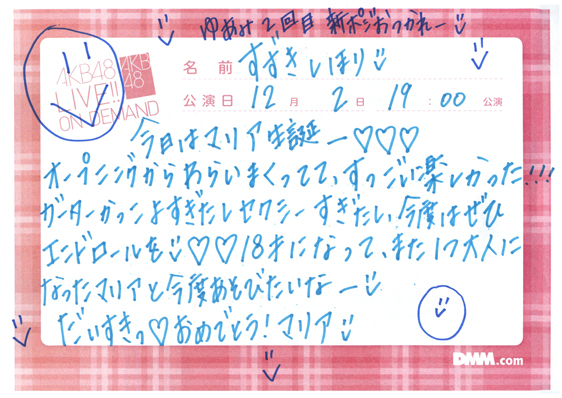 ゆあみ2回目 新ポジおつかれー
AKB48
LIVE!!
ON DEMAND
AKB
48
名前 すずきしほり
公演日 12月 2日 19:00 公演
今日はマリア生誕ー♡♡♡
オープニングからわらいまくってて、すっごい楽しかった!!!
ガーターかっこよすぎたしセクシーすぎたし、今度はぜひ
エンドロールを♡♡18才になって、また1つ大人に
なったマリアと今度あそびたいなー
だいすきっ♡おめでとう!マリア
DMM.com